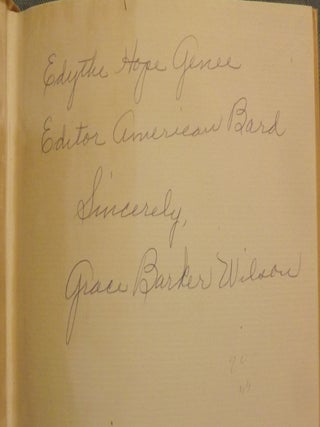 Edythe Hope Genee
Editor American Bard
Sincerely,
Grace Barker Wilson